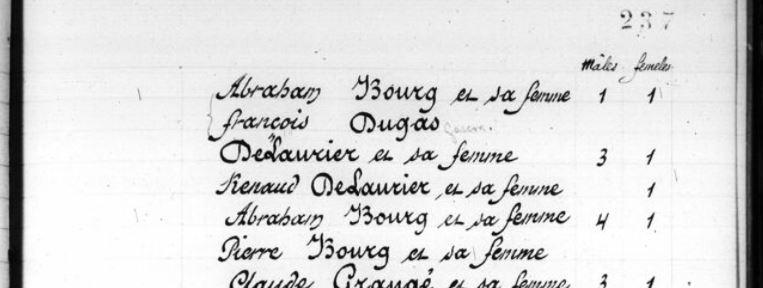 237
males femeles
Abraham Bourg et sa femme 1 1
françois Dugas
DeLaurier et sa femme 3 1
Renaud DeLaurier et sa femme 1
Abraham Bourg et sa femme 4 1
Pierre Bourg et sa femme
Claude Grangé et sa femme 3 1